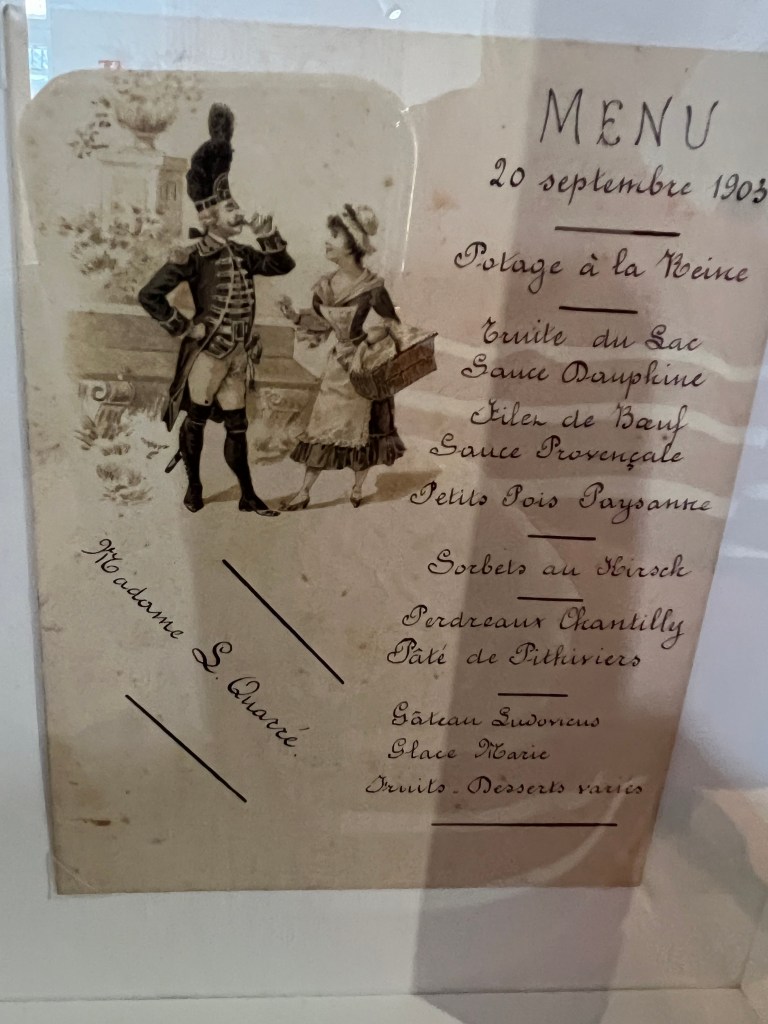 MENU
20 septembre 1903
Potage à la Reine
Truite du Lac
Sauce Dauphine
Filet de Bœuf
Sauce Provençale
Petits Pois Paysanne
Sorbets au Kirsch
Perdreaux Chantilly
Pâté de Pithiviers
Gâteau Ludovicus
Glace Marie
Fruits - Desserts variés
Madame L. Quarré.